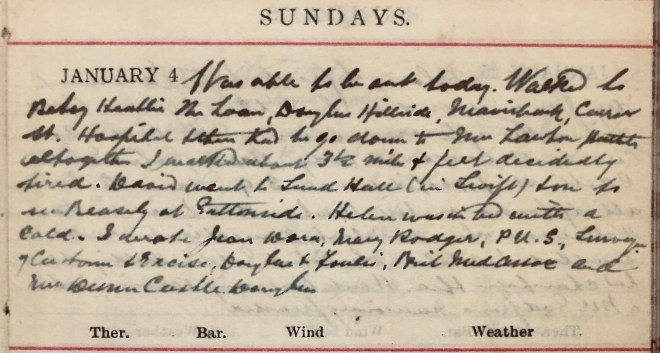 SUNDAYS.
JANUARY 4 Was able to be out today. Walked to
Betsy Heatlie The Loan, Douglas Hillside, Mavisbank, Corror
St. Hospital & then had to go down to Mrs Lawton
altogether I walked about 3½ mile & feet decidedly
tired. David went to Lund Hall (in Swift) & on to
see Beasely at Gattonside. Helen was in bed with a
cold. I wrote Jean Dora, Mary Rodger, P.U.S., Surveyor
of Customs & Excise, Douglas & Foulis, Brit Med Assoc and
Mrs Dunn Castle Douglas
Ther. Bar. Wind Weather